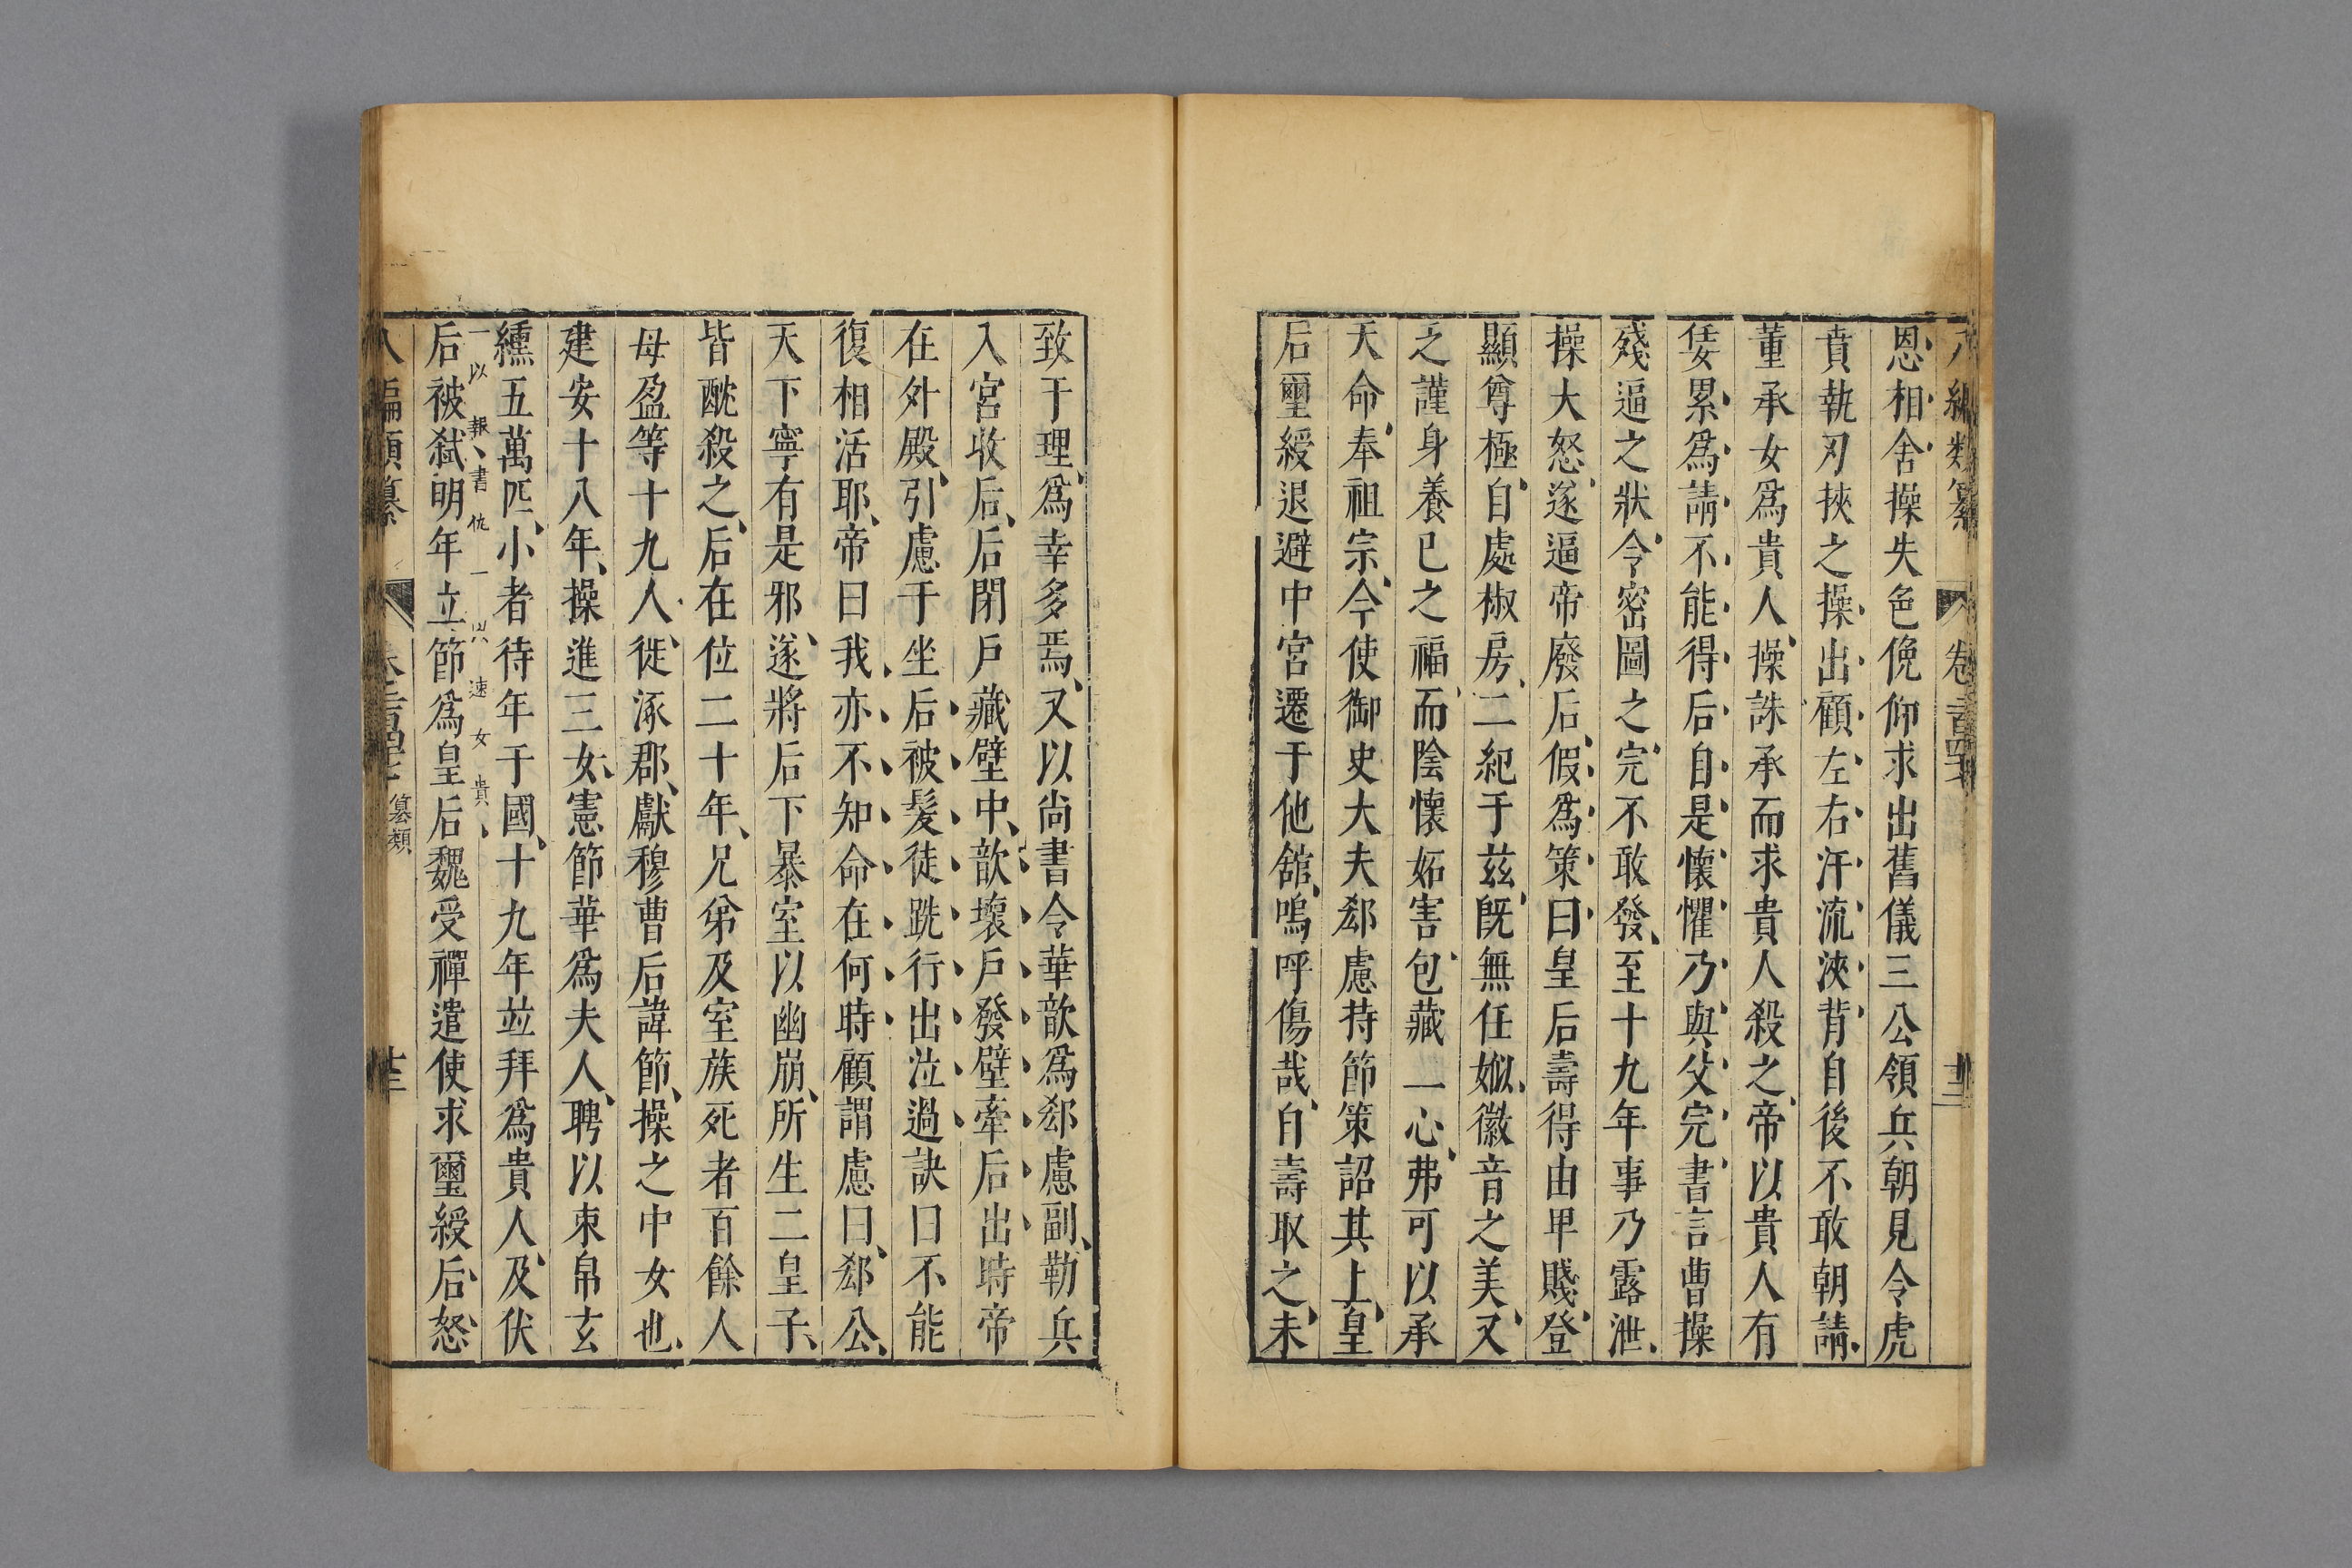 恩相舍操失色俛仰求出舊儀三公領兵朝見令虎
賁執刃挾之操出顧左右汗流浹背自後不敢朝請
董承女爲貴人操誅承而求貴人殺之帝以貴人有
㛂累爲請不能得后自是懷懼乃與父完書言曹操
殘逼之狀令密圖之完不敢發至十九年事乃露泄
操大怒遂逼帝廢后假爲策曰皇后壽得由卑賤登
顯尊極自處椒房二紀于茲旣無任姒徽音之美又
乏謹身養已之福而陰懷妬害包藏一心弗可以承
天命奉祖宗今使御史大夫郄慮持節策詔其上皇
后璽綬退避中宮遷于他舘嗚呼傷哉自壽取之未
致于理爲幸多焉又以尚書令華歆爲郄慮副勒兵
入宮收后后閉戶藏壁中歆壞戶發壁牽后出時帝
在外殿引慮于坐后被髮徒跣行出泣過訣曰不能
復相活耶帝曰我亦不知命在何時顧謂慮曰郄公
天下寧有是邪遂將后下暴室以幽崩所生二皇子
皆酖殺之后在位二十年兄弟及室族死者百餘人
母盈等十九人徙涿郡獻穆曹后諱節操之中女也
建安十八年操進三女憲節華爲夫人聘以束帛玄
纁五萬匹小者待年于國十九年並拜爲貴人及伏
一以報書仇一以速女貴
后被弑明年立節爲皇后魏受禪遣使求璽綬后怒
八編類纂
篡類